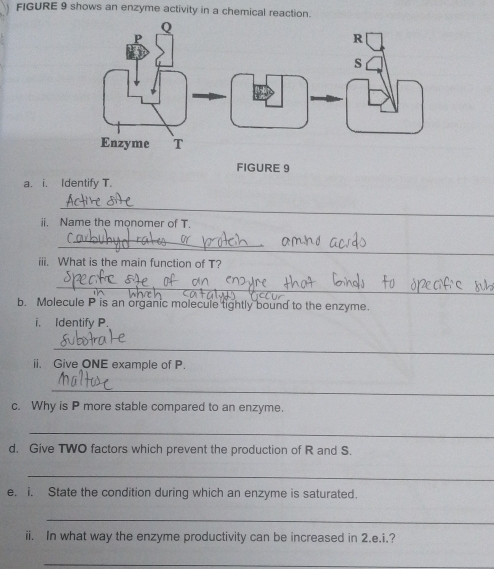 FIGURE 9 shows an enzyme activity in a chemical reaction.
P Q
R
S
Enzyme T
FIGURE 9
a. i. Identify T.
Active site
ii. Name the monomer of T.
carbohydrates or protein amino acids
iii. What is the main function of T?
Specific site of an enzyme that binds to specific subs
in which catalysis occur
b. Molecule P is an organic molecule tightly bound to the enzyme.
i. Identify P.
substrate
ii. Give ONE example of P.
maltose
c. Why is P more stable compared to an enzyme.
d. Give TWO factors which prevent the production of R and S.
e. i. State the condition during which an enzyme is saturated.
ii. In what way the enzyme productivity can be increased in 2.e.i.?